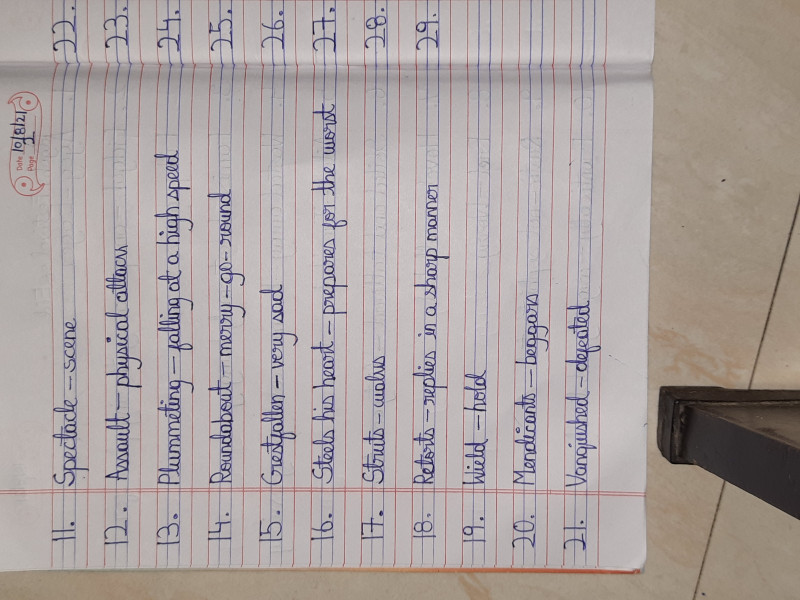 Date 10/8/21
Page 1
11. Spectacle – scene
12. Assault – physical attack
13. Plummeting – falling at a high speed
14. Roundabout – merry-go-round
15. Crestfallen – very sad
16. Steels his heart – prepares for the worst
17. Struts – walks
18. Retorts – replies in a sharp manner
19. Wield – hold
20. Mendicants – beggars
21. Vanquished – defeated
22.
23.
24.
25.
26.
27.
28.
29.